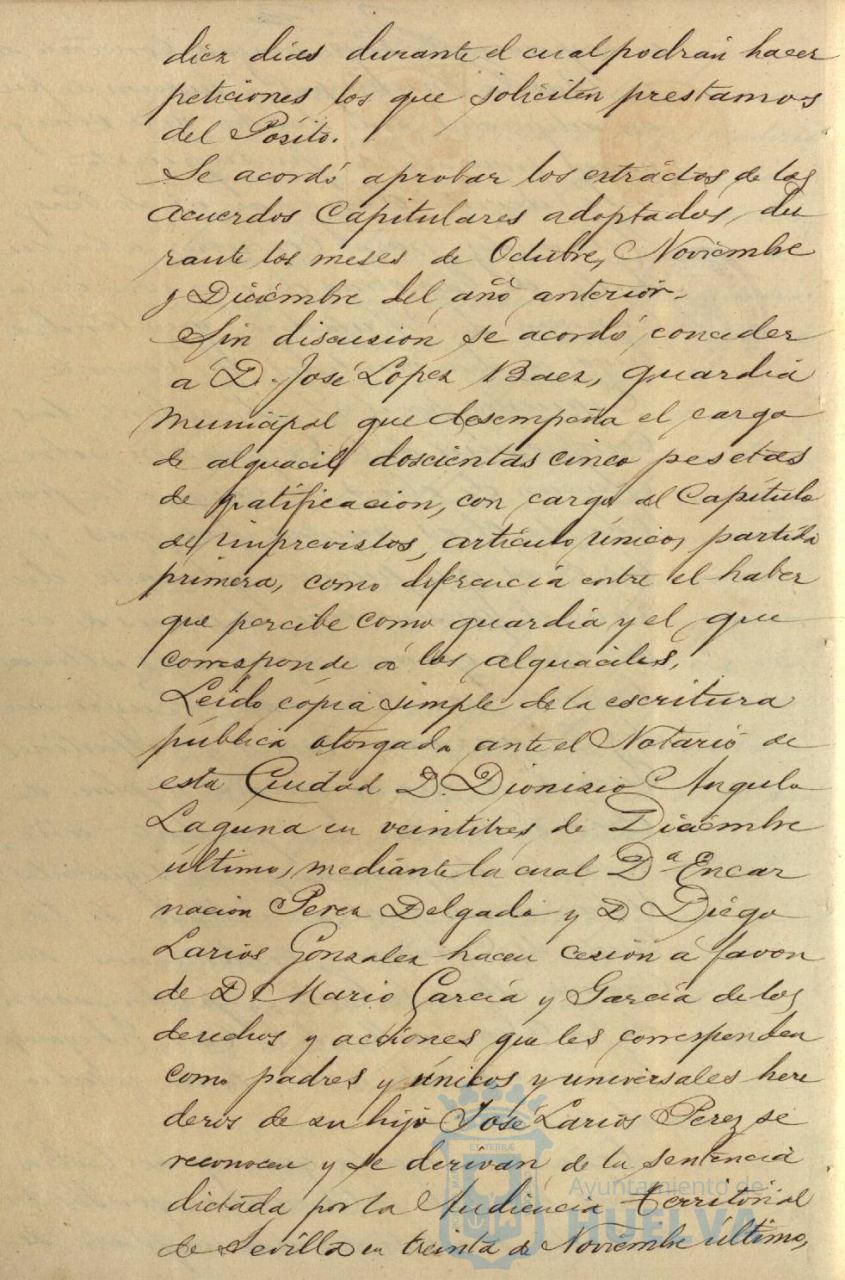 diez dias durante el cual podrán hacer
peticiones los que soliciten prestamos
del Pósito.
Se acordó aprobar los extractos de los
acuerdos Capitulares adoptados, du
rante los meses de Octubre, Noviembre
y Diciembre del año anterior.
Sin discusion se acordó conceder
á D. José Lopez Baez, guardia
municipal que desempeña el cargo
de alguacil doscientas cinco pesetas
de gratificacion, con cargo al Capítulo
de imprevistos, artículo único, partida
primera, como diferencia entre el haber
que percibe como guardia y el que
corresponde á los alguaciles.
Leido copia simple de la escritura
pública otorgada ante el Notario de
esta Ciudad D. Dionisio Angulo
Laguna en veintitres de Diciembre
último, mediante la cual D.ª Encar
nacion Perez Delgado y D Diego
Larios Gonzalez hacen cesion á favor
de D. Mario García y García de los
derechos y acciones que les corresponden
como padres y únicos y universales here
deros de su hijo José Larios Perez se
reconocen y se derivan de la sentencia
dictada por la Audiencia Territorial
de Sevilla en treinta de Noviembre último,
Ayuntamiento de
HUELVA